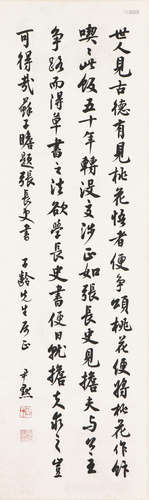 世人見古德有見桃花悟者便爭頌桃花便將桃花作飯
喫喫此飯五十年轉沒交涉正如張長史見擔夫與公主
爭路而得草書之法欲學長史書便日就擔夫求之豈
可得哉蘇子瞻題張長史書
子齡先生屬正
尹默